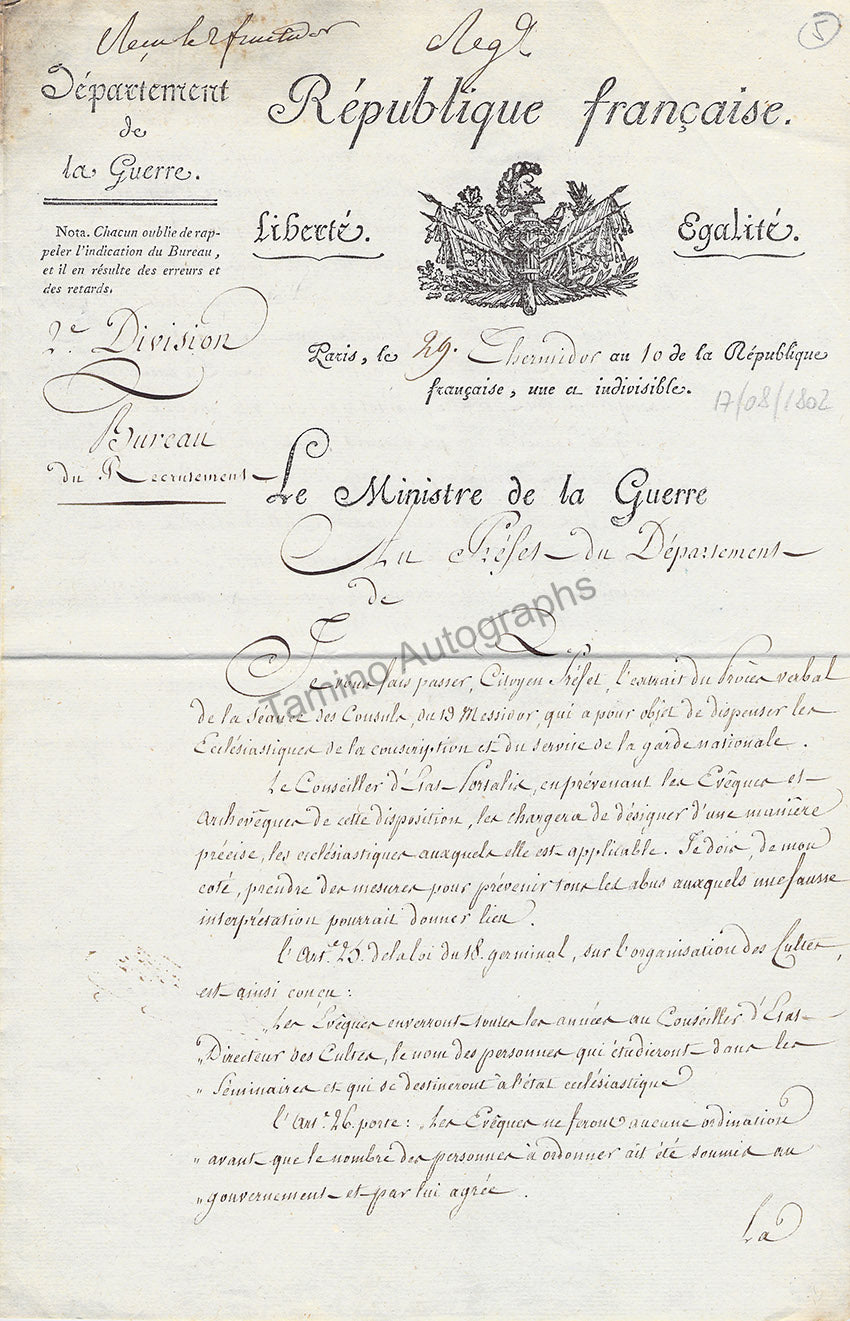 Reçu le 2 fructidor
Reg^é
5
Département
de
la Guerre.
République française.
Liberté.
Egalité.
Nota. Chacun oublie de rap-
peler l'indication du Bureau,
et il en résulte des erreurs et
des retards.
2.e Division
Bureau
du Recrutement
Paris, le 29. Thermidor au 10 de la République
française, une et indivisible.
17/08/1802
Le Ministre de la Guerre
Au Préfet du Département
de
Je vous fais passer, Citoyen Préfet, l'extrait du Procès verbal
de la Séance des Consuls, du 19 Messidor, qui a pour objet de dispenser les
Ecclésiastiques de la conscription et du service de la garde nationale.
Le Conseiller d'Etat Portalis, en prévenant les Evêques et
Archevêques de cette disposition, les chargera de désigner d'une manière
précise, les ecclésiastiques auxquels elle est applicable. Je dois, de mon
coté, prendre des mesures pour prévenir tous les abus auxquels une fausse
interprétation pourrait donner lieu.
l'Art.e 25. de la loi du 18. germinal, sur l'organisation des Cultes,
est ainsi conçu :
„ Les Evêques enverront toutes les années au Conseiller d'Etat
„ Directeur des Cultes, le nom des personnes qui étudieront dans les
„ Séminaires et qui se destineront à l'état ecclésiastique
l'Art.e 26. porte : „ Les Evêques ne feront aucune ordination
„ avant que le nombre des personnes à ordonner ait été soumis au
„ gouvernement et par lui agréé.
La
Tamino Autographs